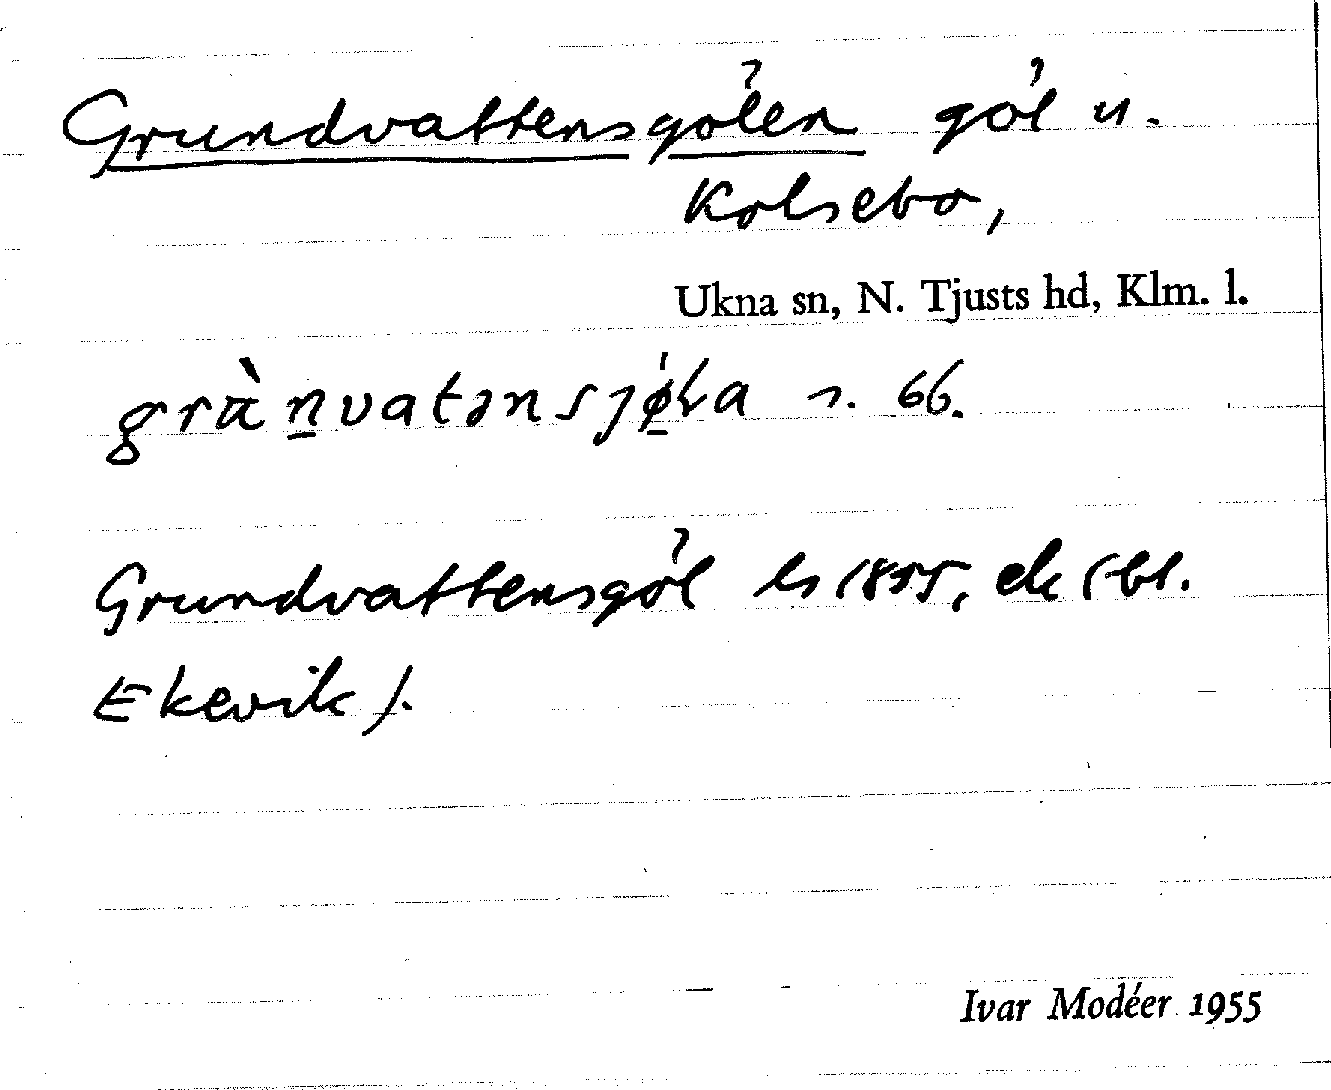 Grundvattensgölen göl u.
Kolsebo,
Ukna sn, N. Tjusts hd, Klm. l.
s. 66.
Grundvattensgöl ls 1855, ek (bl.
Ekevik).
Ivar Modéer 1955